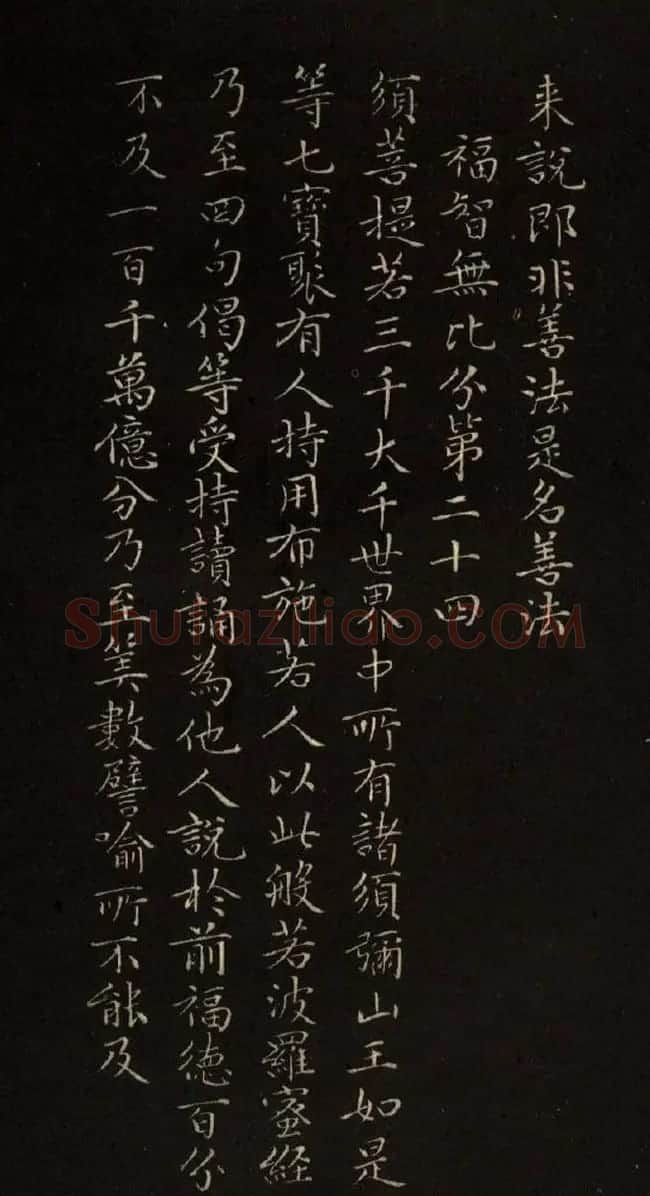 来說即非善法是名善法
福智無比分第二十四
須菩提若三千大千世界中所有諸須彌山王如是
等七寶聚有人持用布施若人以此般若波羅蜜経
乃至四句偈等受持讀誦為他人說於前福德百分
不及一百千萬億分乃至筭數譬喻所不能及
Shufaziliao.COM